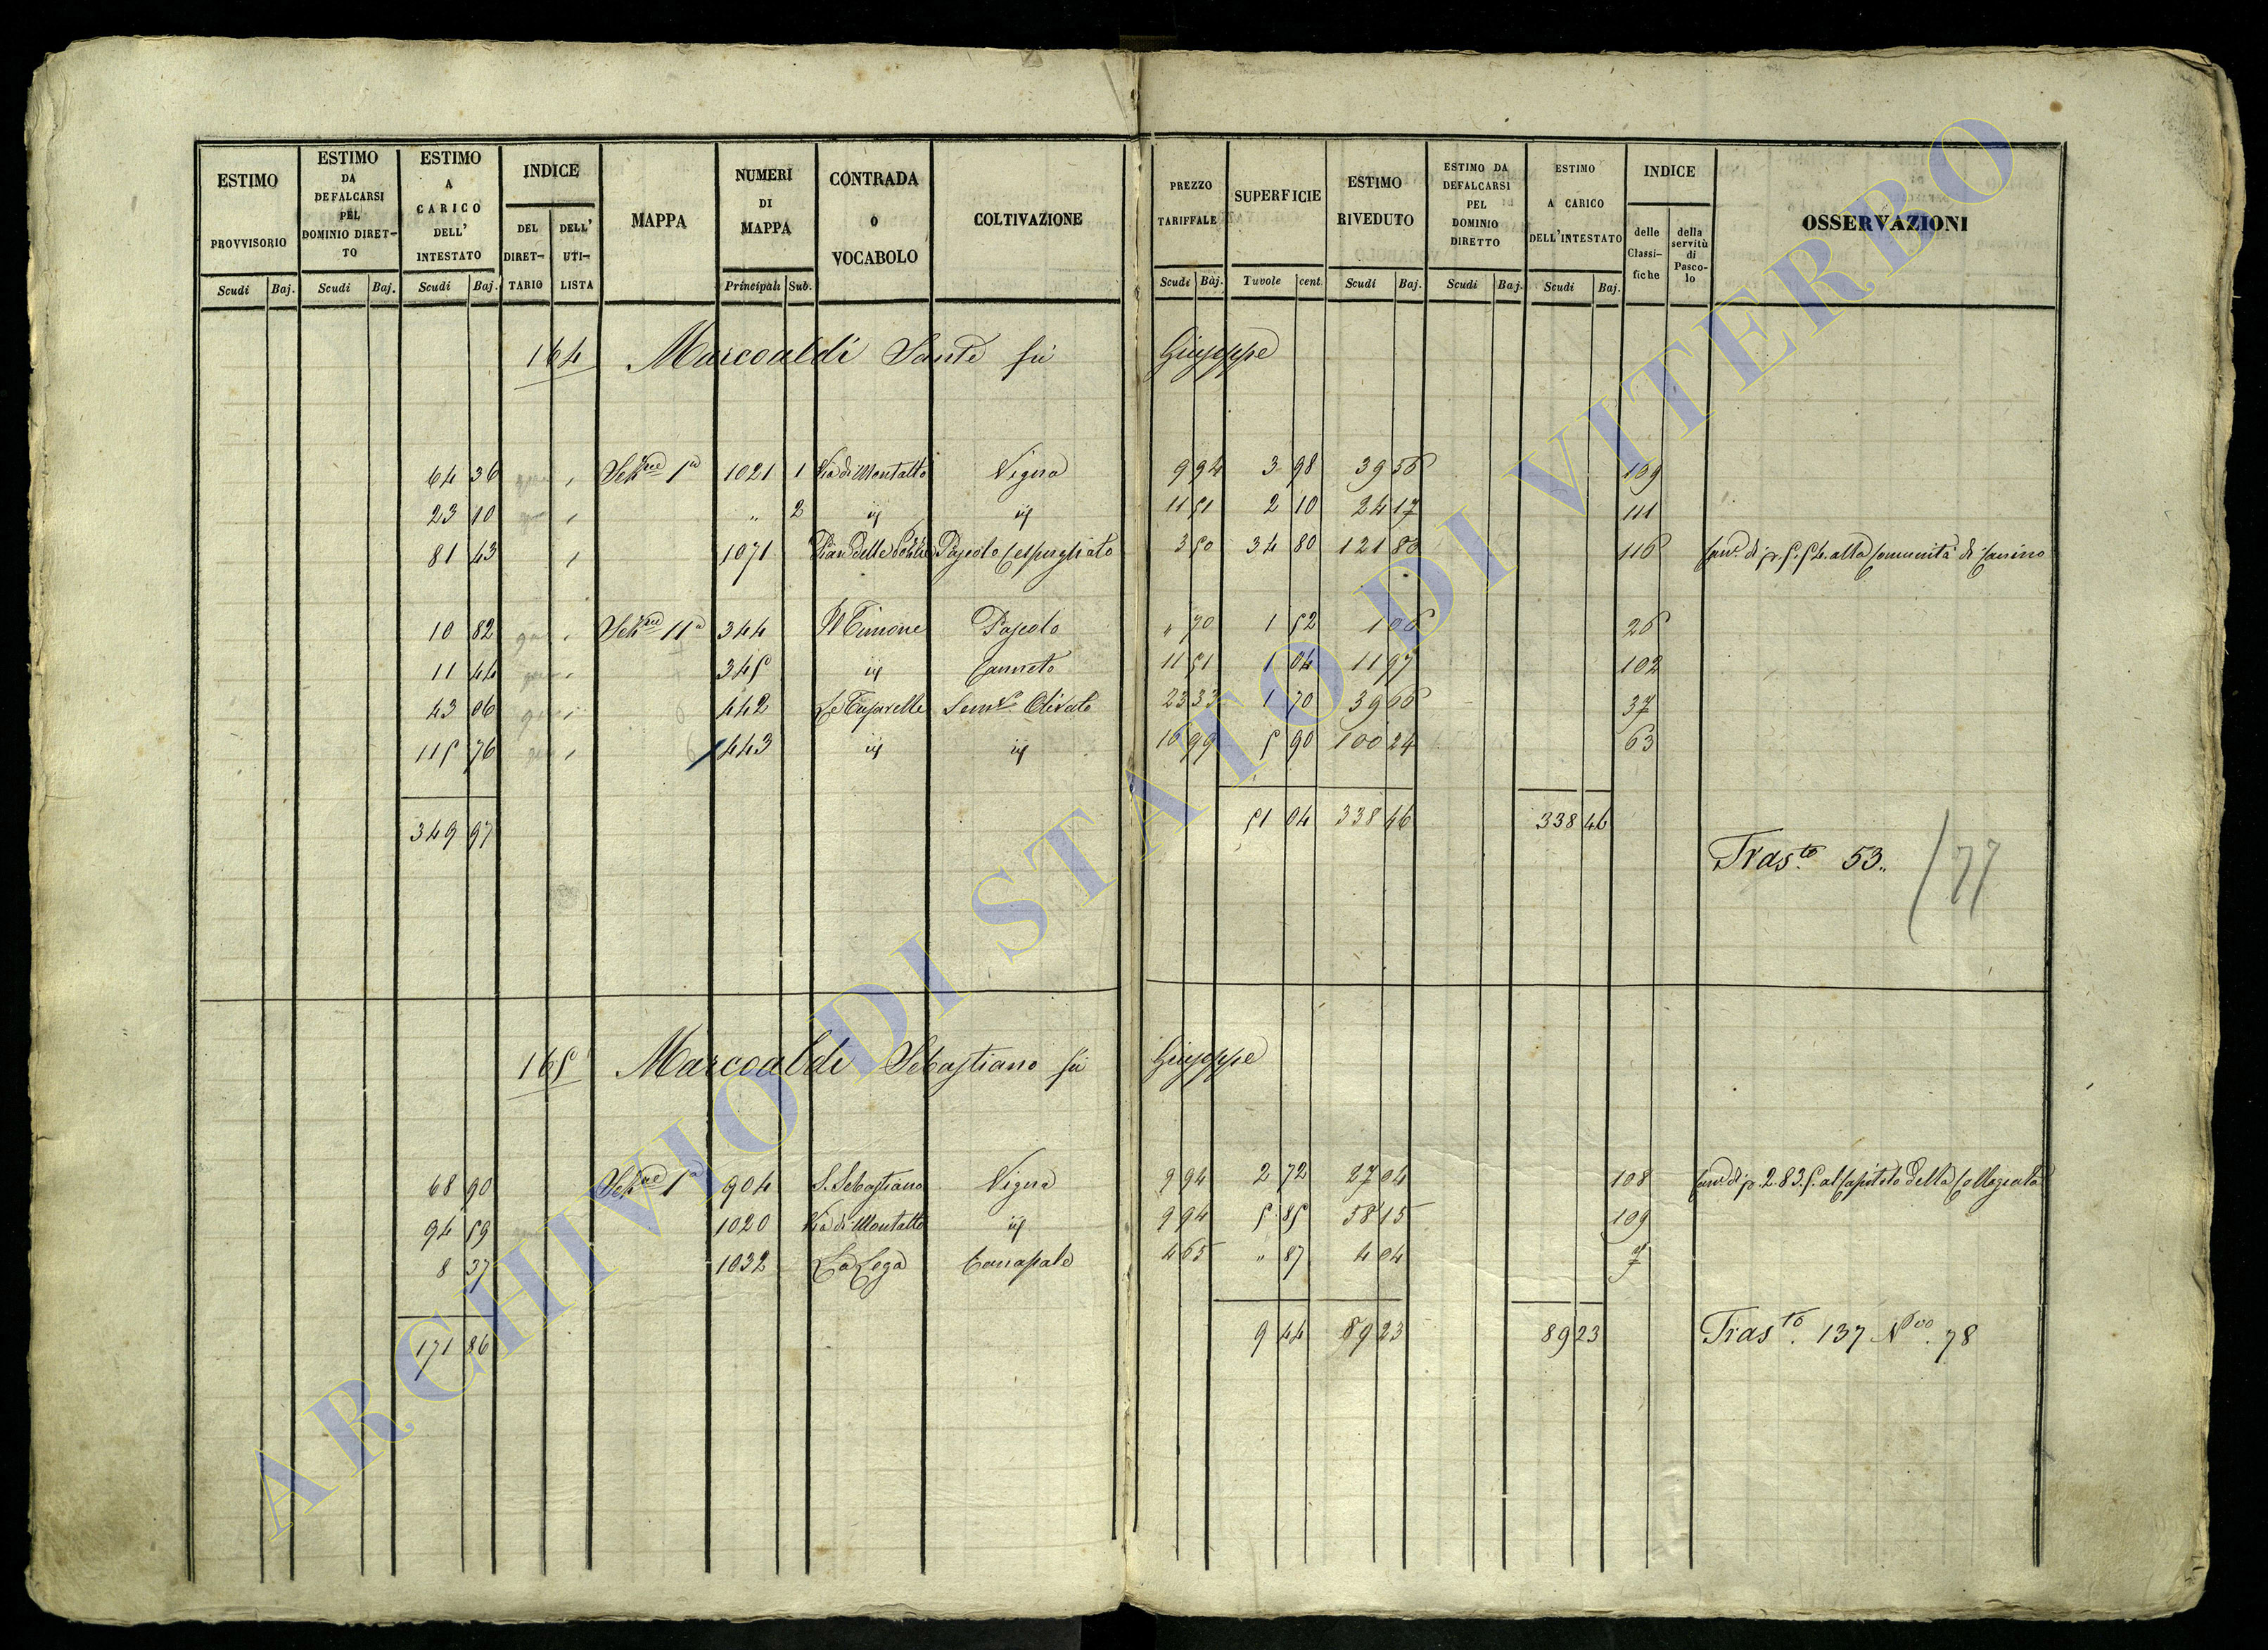 ESTIMO PROVVISORIO Scudi Baj.
ESTIMO DA DEFALCARSI PEL DOMINIO DIRET-TO Scudi Baj.
ESTIMO A CARICO DELL' INTESTATO Scudi Baj.
INDICE DEL DIRET-TARIO DELL' UTI-LISTA
MAPPA
NUMERI DI MAPPA Principali Sub.
CONTRADA O VOCABOLO
COLTIVAZIONE
PREZZO TARIFFALE Scudi Baj.
SUPERFICIE Tavole cent
ESTIMO RIVEDUTO Scudi Baj.
ESTIMO DA DEFALCARSI PEL DOMINIO DIRETTO Scudi Baj.
ESTIMO A CARICO DELL'INTESTATO Scudi Baj.
INDICE delle Classi-fiche della servitù di Pasco-lo
OSSERVAZIONI
164 Marcoaldi Sante fù Giuseppe
64 36 Sez.ne 1a 1021 1 Via di Montalto Vigna 9 94 3 98 39 56 139
23 10 " 2 id id 11 51 2 10 24 17 111
81 43 1071 Pascolo Cespugliato 3 50 34 80 121 80 116 alla Comunità di Canino
10 82 Sez.ne 11a 344 Il Timone Pascolo " 70 1 52 1 06 26
11 44 345 id Canneto 11 51 1 04 11 97 102
43 06 442 Le Tufarelle Sem.vo Olivato 23 33 1 70 39 66 37
115 76 443 id id 16 99 5 90 100 24 63
349 97 51 04 338 46 338 46
Tras.to 53. 77
165 Marcoaldi Sebastiano fù Giuseppe
68 90 Sez.ne 1a 904 S. Sebastiano Vigna 9 94 2 72 27 04 108 di p. 2.83.5. al Capitolo della Collegiata
94 59 1020 Via di Montalto id 9 94 5 85 58 15 109
8 37 1032 La Lega Canapale 4 65 " 87 4 04 7
171 86 9 44 89 23 89 23
Tras.to 137 N.vo 78
ARCHIVIO DI STATO DI VITERBO